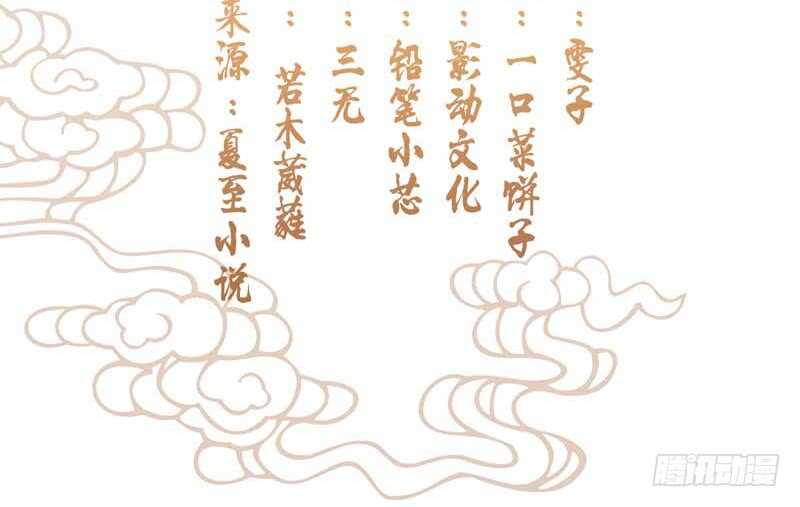 ：雯子
：一口菜饼子
影动文化
：铅笔小芯
：三无
：若木葳蕤
来源：夏至小说
腾讯动漫